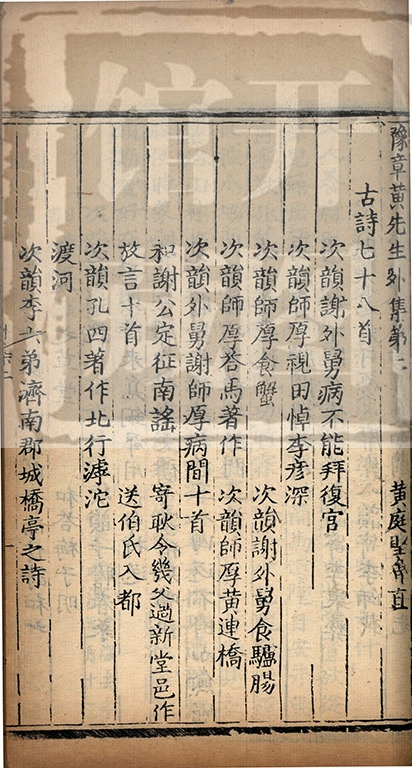 豫章黃先生外集第二 黃庭堅魯直
古詩七十八首
次韻謝外舅病不能拜復官
次韻師厚視田悼李彥深
次韻師厚食蟹 次韻謝外舅食驢腸
次韻師厚答馬著作 次韻師厚黃連橋
次韻外舅謝師厚病間十首
和謝公定征南謠 寄耿令幾父過新堂邑作
放言十首 送伯氏入都
次韻孔四著作北行滹沱
渡河
次韻李六弟濟南郡城橋亭之詩